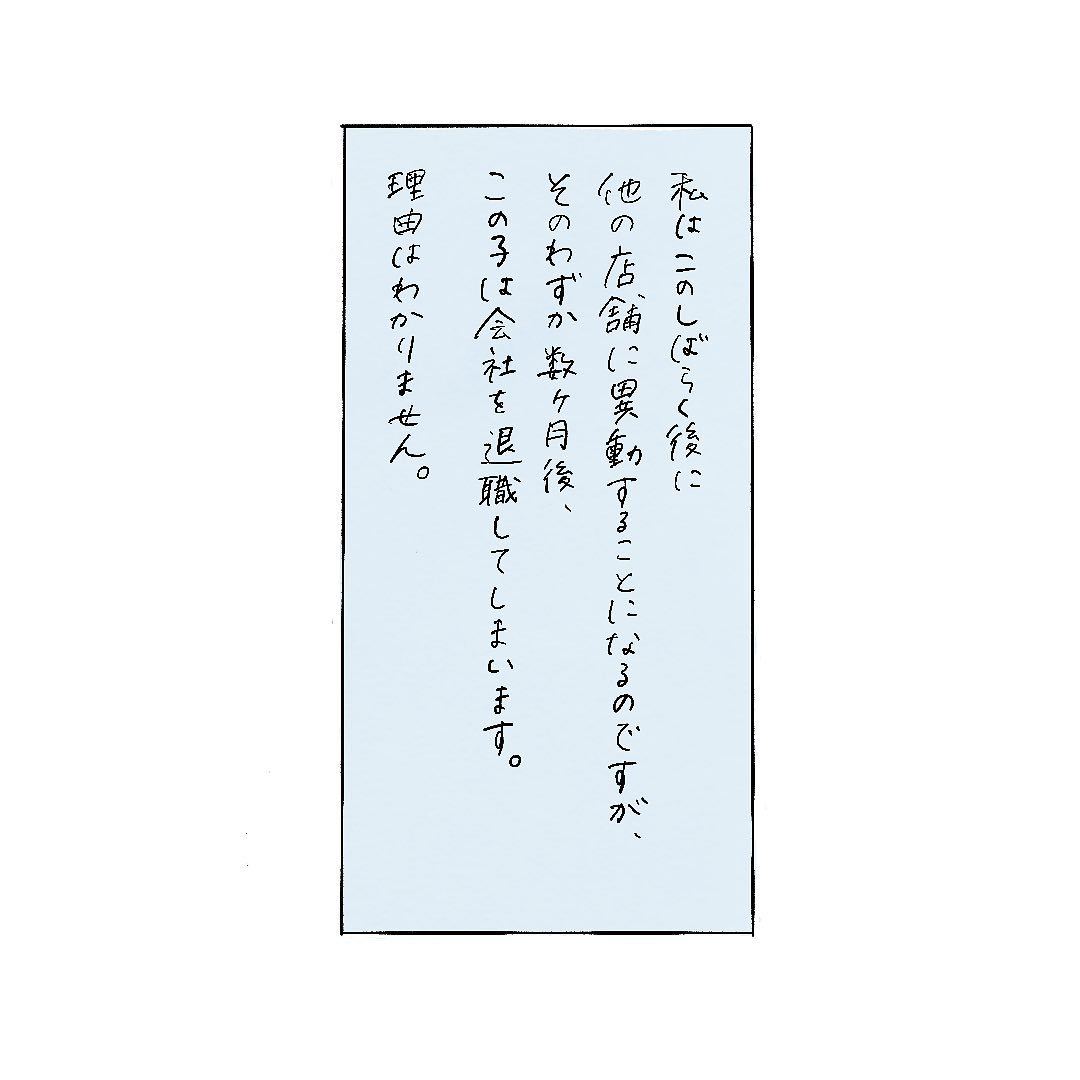 私はこのしばらく後に
他の店舗に異動することになるのですが、
そのわずか数ヶ月後、
この子は会社を退職してしまいます。
理由はわかりません。